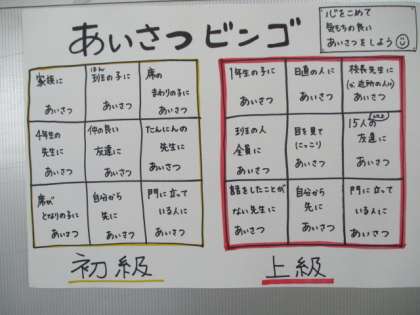 あいさつビンゴ
心をこめて
気もちの良い
あいさつをしよう
家族に
あいさつ
はん
班の子に
あいさつ
席の
まわりの子に
あいさつ
4年生の
先生に
あいさつ
仲の良い
友達に
あいさつ
たんにんの
先生に
あいさつ
席が
となりの子に
あいさつ
自分から
先に
あいさつ
門に立って
いる人に
あいさつ
初級
1年生の子に
あいさつ
日直の人に
あいさつ
校長先生に
(か 近所の人に)
あいさつ
班の人
全員に
あいさつ
目を見て
にっこり
あいさつ
15人の
友達に
あいさつ
話をしたことが
ない先生に
あいさつ
自分から
先に
あいさつ
門に立って
いる人に
あいさつ
上級